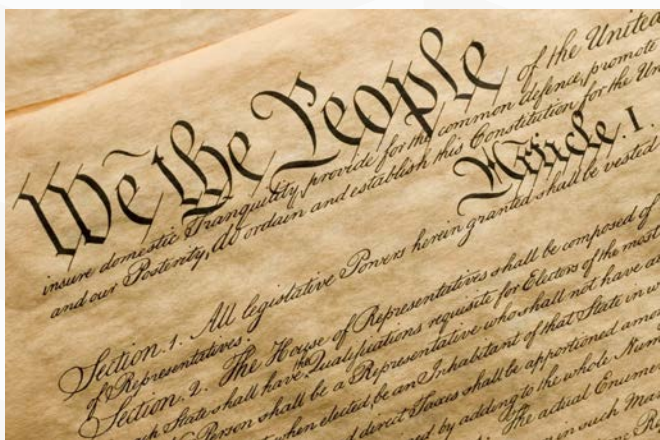 We the People of the United
insure domestic Tranquility, provide for the common defence, promote
and our Posterity, do ordain and establish this Constitution for the Uni
Article. I.
Section. 1. All legislative Powers herein granted shall be vested
of Representatives.
Section. 2. The House of Representatives shall be composed of
State shall have the Qualifications requisite for Electors of the most
Person shall be a Representative who shall not have a
when elected, be an Inhabitant of that State in w
and direct Taxes shall be apportioned amo
by adding to the whole Num
The actual Enumer
in such Man